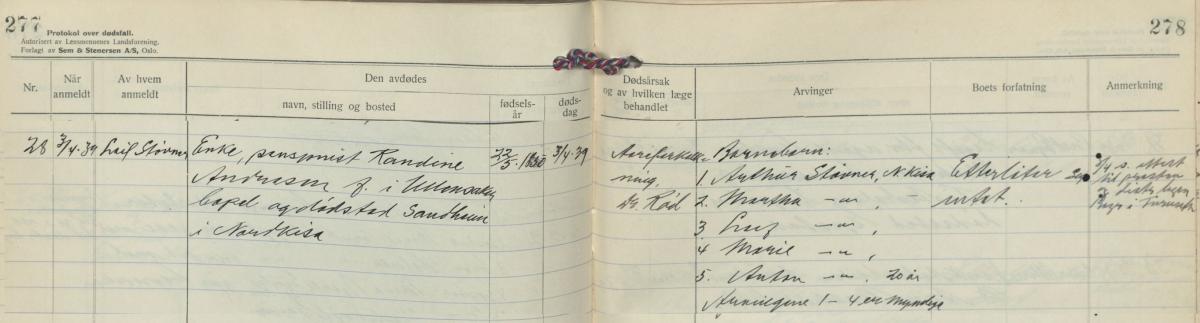 277
278
Protokol over dødsfall.
Autorisert av Lensmennenes Landsforening.
Forlagt av Sem & Stenersen A/S, Oslo.
Nr.
Når anmeldt
Av hvem anmeldt
Den avdødes
navn, stilling og bosted
fødsels-
år
døds-
dag
Dødsårsak
og av hvilken læge
behandlet
Arvinger
Boets forfatning
Anmerkning
28 3/4.39 Leif Støvner Enke, pensjonist Randine 22/5.1850 3/4.39
Andresen f. i Ullensaker
bopel og dødsted Sandheim
i Nordkisa
Aareforkalk-
ning.
Dr. Rød
Barnebarn:
1. Arthur Støvner, N. Kisa
2. Martha —"—
3 Leif —"—
4 Marie —"—
5. Anton —"— 20 år
Arvingene 1-4 er myndige
Efterlater sig
intet.
3/4 s. attest
til presten